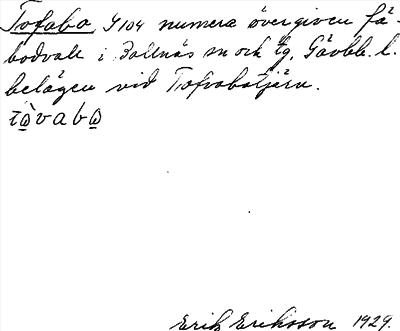 Tofabo G 104 numera övergiven fä-
bodvall i Bollnäs sn och tg, Gävleb. l.
belägen vid Tofvabotjärn.
tòvabo
Erik Eriksson 1929.